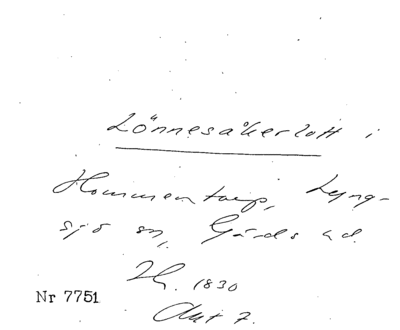 Lönnesåkerlott i
Hommentorp, Lyng-
sjö sn, Gärds hd.
Lh. 1830
Nr 7751
Akt 7.